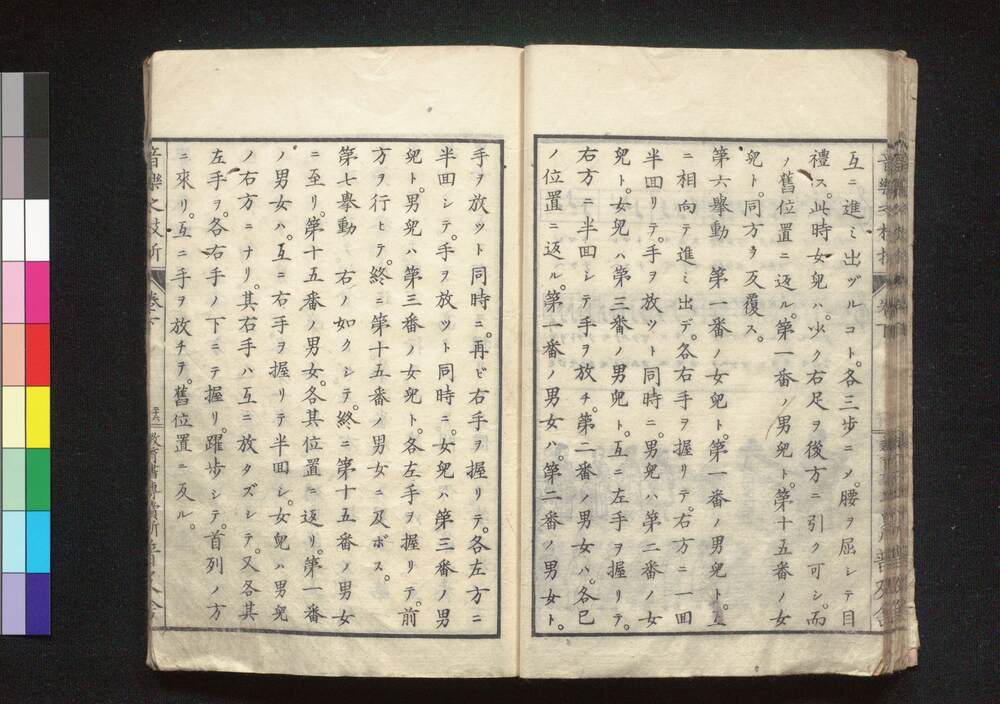 互ニ進ミ出ヅルコト。各三歩ニメ。腰ヲ屈シテ目
禮ス。此時女兒ハ。少ク右足ヲ後方ニ引ク可シ。而
ノ舊位置ニ返ル。第一番ノ男兒ト。第十五番ノ女
兒ト。同方ヲ反覆ス。
第六擧動 第一番ノ女兒ト。第一番ノ男兒ト。互
ニ相向テ進ミ出デ。各右手ヲ握リテ。右方ニ一回
半回リテ。手ヲ放ツト同時ニ。男兒ハ第二番ノ女
兒ト。女兒ハ第三番ノ男兒ト。互ニ左手ヲ握リテ。
右方ニ半回シテ手ヲ放チ。第二番ノ男女ハ。各已
ノ位置ニ返ル。第一番ノ男女ハ。第二番ノ男女ト。
手ヲ放ツト同時ニ。再ビ右手ヲ握リテ。各左方ニ
半回シテ。手ヲ放ツト同時ニ。女兒ハ第三番ノ男
兒ト。男兒ハ第三番ノ女兒ト。各左手ヲ握リテ。前
方ヲ行ヒテ。終ニ第十五番ノ男女ニ及ボス。
第七擧動 右ノ如クシテ。終ニ第十五番ノ男女
ニ至リ。第十五番ノ男女。各其位置ニ返リ。第一番
ノ男女ハ。互ニ右手ヲ握リテ半回シ。女兒ハ男兒
ノ右方ニナリ。其右手ハ互ニ放タズシテ。又各其
左手ヲ。各右手ノ下ニテ握リ。躍歩シテ。首列ノ方
ニ來リ。互ニ手ヲ放チテ。舊位置ニ反ル。
音樂之枝折 卷下